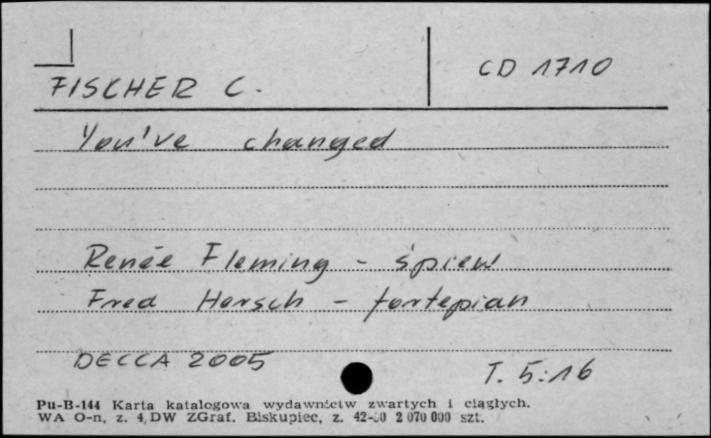 FISCHER C.
CD 1710
You've changed
Renée Fleming - śpiew
Fred Hersch - fortepian
DECCA 2005
T. 5:16
Pu-B-144 Karta katalogowa wydawnictw zwartych i ciągłych.
WA O-n, z. 4, DW ZGraf. Biskupiec, z. 2 070 000 szt.